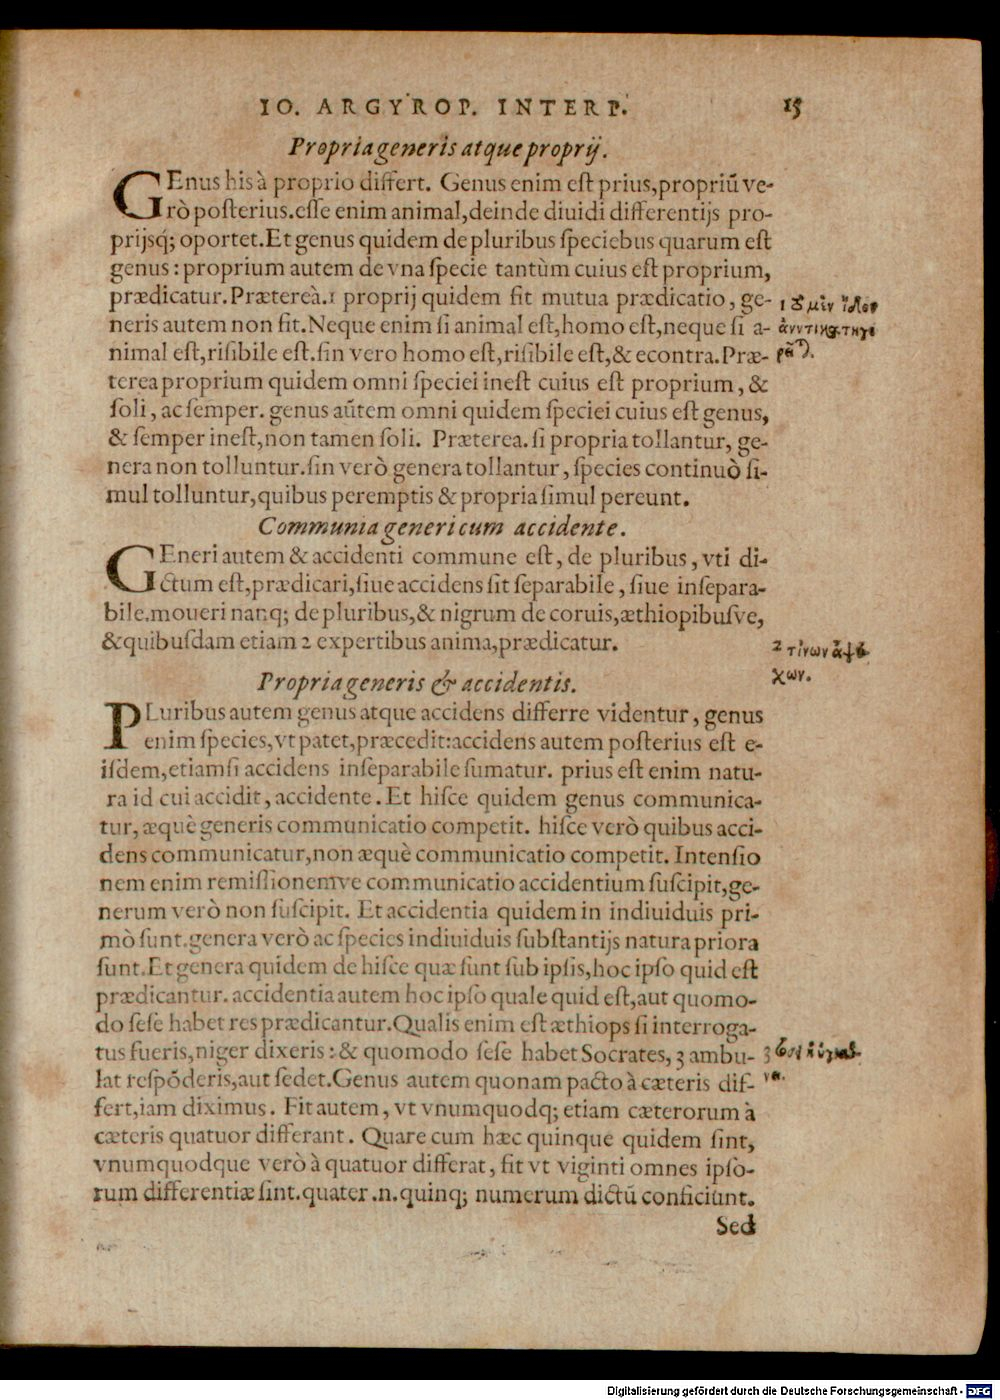 IO. ARGYROP. INTERP. 15
Propria generis atque proprij.
GEnus his à proprio differt. Genus enim est prius, propriū ve-
rò posterius. esse enim animal, deinde diuidi differentijs pro-
prijsq́; oportet. Et genus quidem de pluribus speciebus quarum est
genus: proprium autem de vna specie tantùm cuius est proprium,
prædicatur. Prætereà. 1 proprij quidem fit mutua prædicatio, ge-
neris autem non fit. Neque enim si animal est, homo est, neque si a-
nimal est, risibile est. sin vero homo est, risibile est, & econtra. Præ-
terea proprium quidem omni speciei inest cuius est proprium, &
soli, ac semper. genus aūtem omni quidem speciei cuius est genus,
& semper inest, non tamen soli. Præterea. si propria tollantur, ge-
nera non tolluntur. sin verò genera tollantur, species continuò si-
mul tolluntur, quibus peremptis & propria simul pereunt.
Communia generi cum accidente.
GEneri autem & accidenti commune est, de pluribus, vti di-
ctum est, prædicari, siue accidens sit separabile, siue insepara-
bile. moueri nanq; de pluribus, & nigrum de coruis, æthiopibusve,
& quibusdam etiam 2 expertibus anima, prædicatur.
2 τίνων ἀψύ-
χων.
Propria generis & accidentis.
PLuribus autem genus atque accidens differre videntur, genus
enim species, vt patet, præcedit: accidens autem posterius est e-
isdem, etiamsi accidens inseparabile sumatur. prius est enim natu-
ra id cui accidit, accidente. Et hisce quidem genus communica-
tur, æquè generis communicatio competit. hisce verò quibus acci-
dens communicatur, non æquè communicatio competit. Intensio
nem enim remissionemve communicatio accidentium suscipit, ge-
nerum verò non suscipit. Et accidentia quidem in indiuiduis pri-
mò sunt. genera verò ac species indiuiduis substantijs natura priora
sunt. Et genera quidem de hisce quæ sunt sub ipsis, hoc ipso quid est
prædicantur. accidentia autem hoc ipso quale quid est, aut quomo-
do sese habet res prædicantur. Qualis enim est æthiops si interroga-
tus fueris, niger dixeris: & quomodo sese habet Socrates, 3 ambu-
lat respōderis, aut sedet. Genus autem quonam pacto à cæteris dif-
fert, iam diximus. Fit autem, vt vnumquodq; etiam cæterorum à
cæteris quatuor differant. Quare cum hæc quinque quidem sint,
vnumquodque verò à quatuor differat, fit vt viginti omnes ipso-
rum differentiæ sint. quater .n. quinq; numerum dictū conficiunt.
Sed
Digitalisierung gefördert durch die Deutsche Forschungsgemeinschaft - DFG